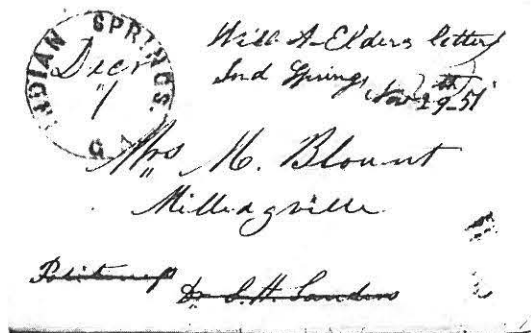 INDIAN SPRINGS. GA
Decr
1
Will A Elders letter
Ind Springs Nov 29th 51
Mrs M. Blount
Milledgville
Dr S. H. Sanders